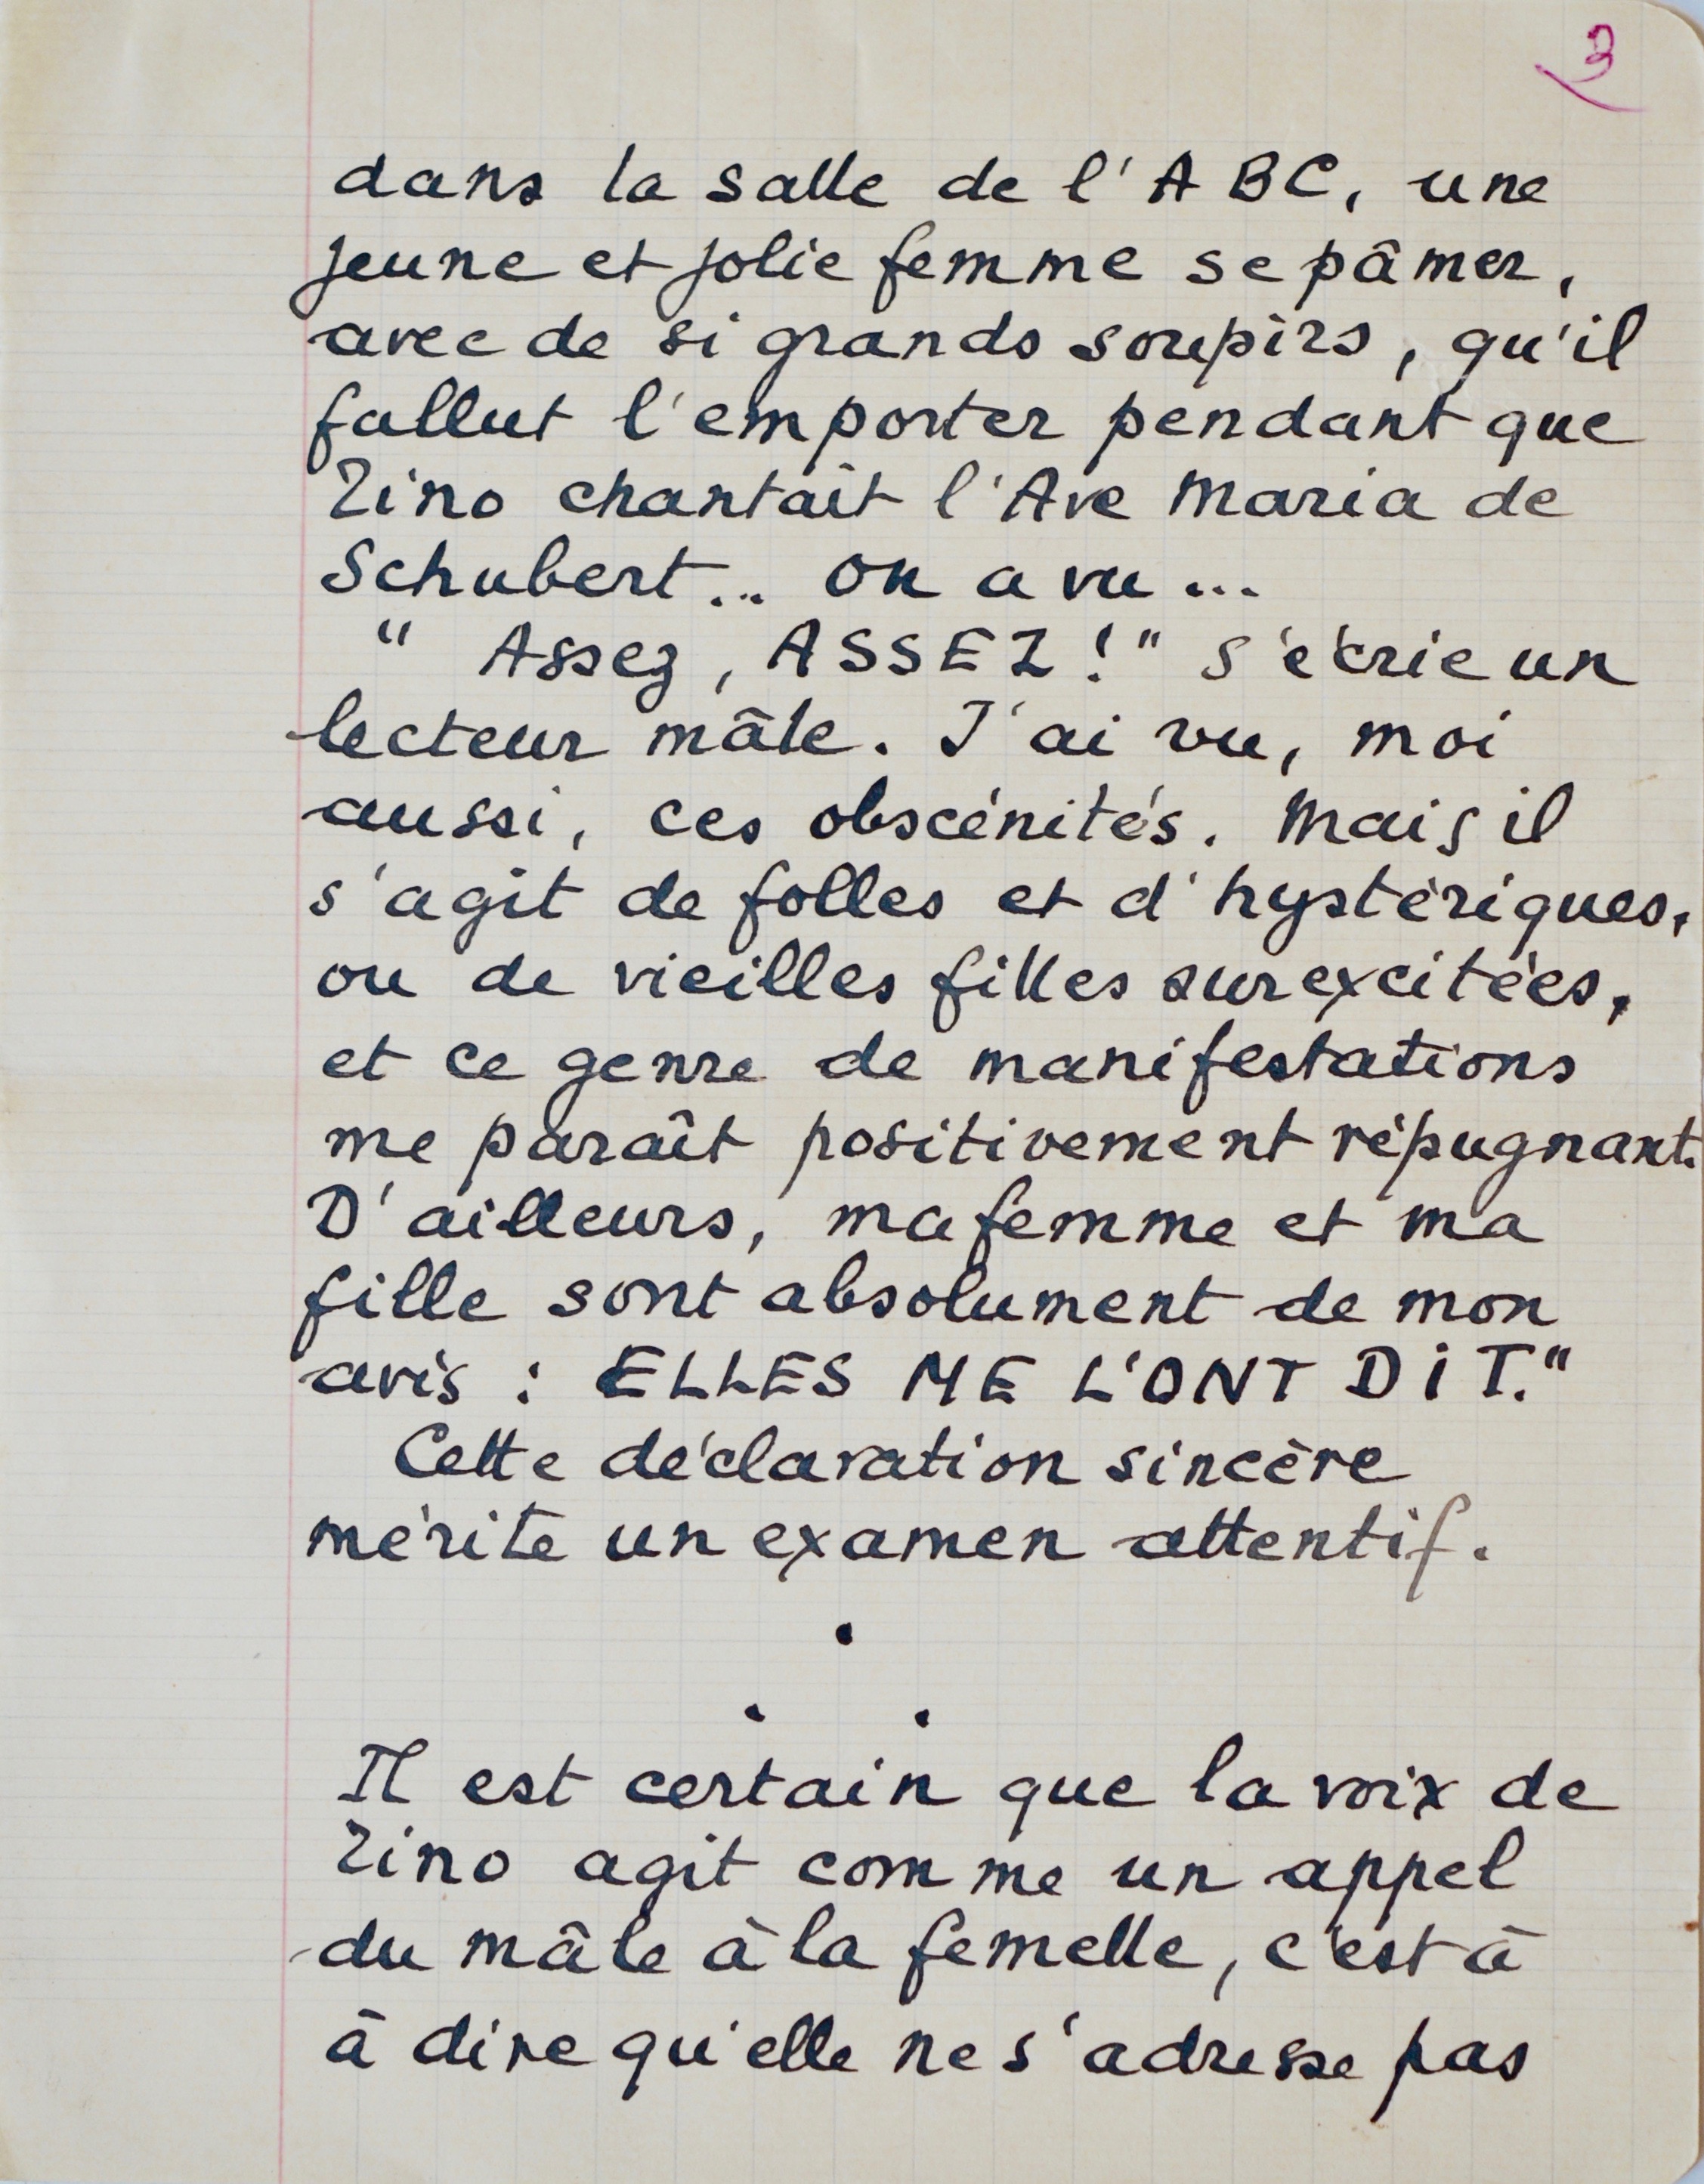 3
dans la salle de l'ABC, une
jeune et jolie femme se pâmer,
avec de si grands soupirs, qu'il
fallut l'emporter pendant que
Tino chantait l'Ave Maria de
Schubert... on a vu...
" Assez, ASSEZ !" s'écrie un
lecteur mâle. J'ai vu, moi
aussi, ces obscénités. Mais il
s'agit de folles et d'hystériques,
ou de vieilles filles surexcitées,
et ce genre de manifestations
me paraît positivement répugnant.
D'ailleurs, ma femme et ma
fille sont absolument de mon
avis : ELLES ME L'ONT DIT."
Cette déclaration sincère
mérite un examen attentif.
.
. .
Il est certain que la voix de
Tino agit comme un appel
du mâle à la femelle, c'est à
à dire qu'elle ne s'adresse pas